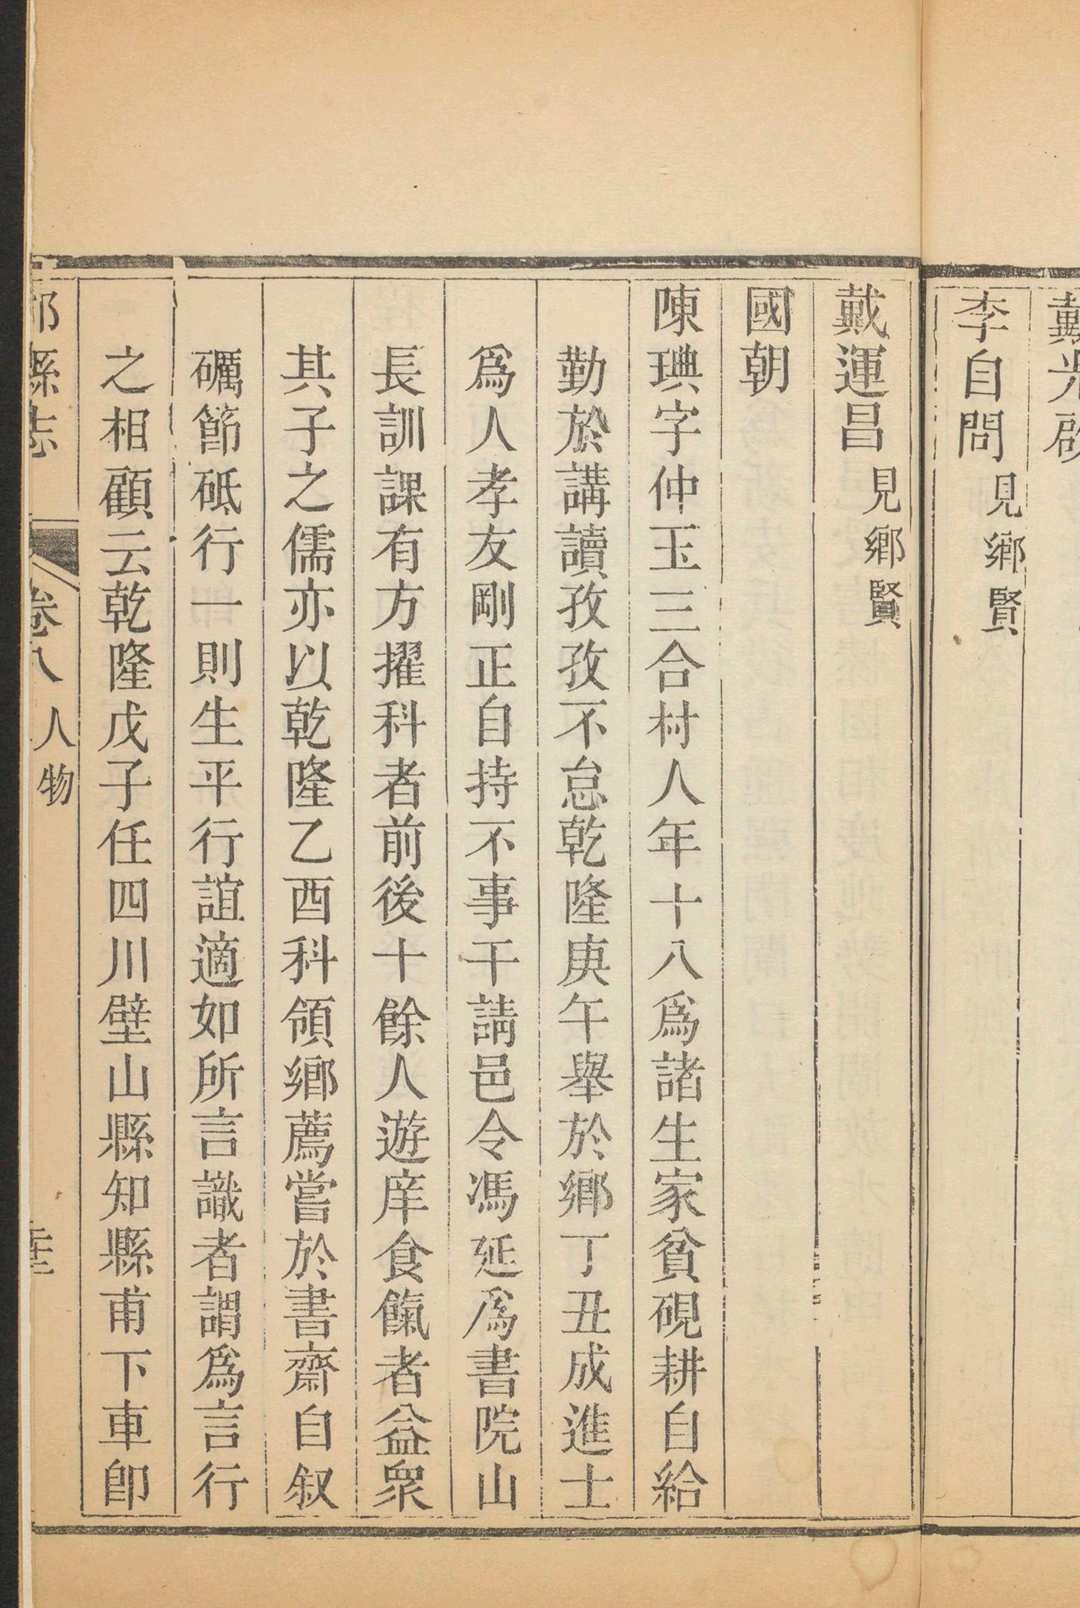 戴光啟
李自問 見鄉賢
戴運昌 見鄉賢
國朝
陳琠字仲玉三合村人年十八爲諸生家貧硯耕自給
勤於講讀孜孜不怠乾隆庚午舉於鄉丁丑成進士
爲人孝友剛正自持不事干請邑令馮延爲書院山
長訓課有方擢科者前後十餘人遊庠食餼者益眾
其子之儒亦以乾隆乙酉科領鄉薦嘗於書齋自叙
礪節砥行一則生平行誼適如所言識者謂爲言行
之相顧云乾隆戊子任四川壁山縣知縣甫下車卽
縣志 卷八 人物